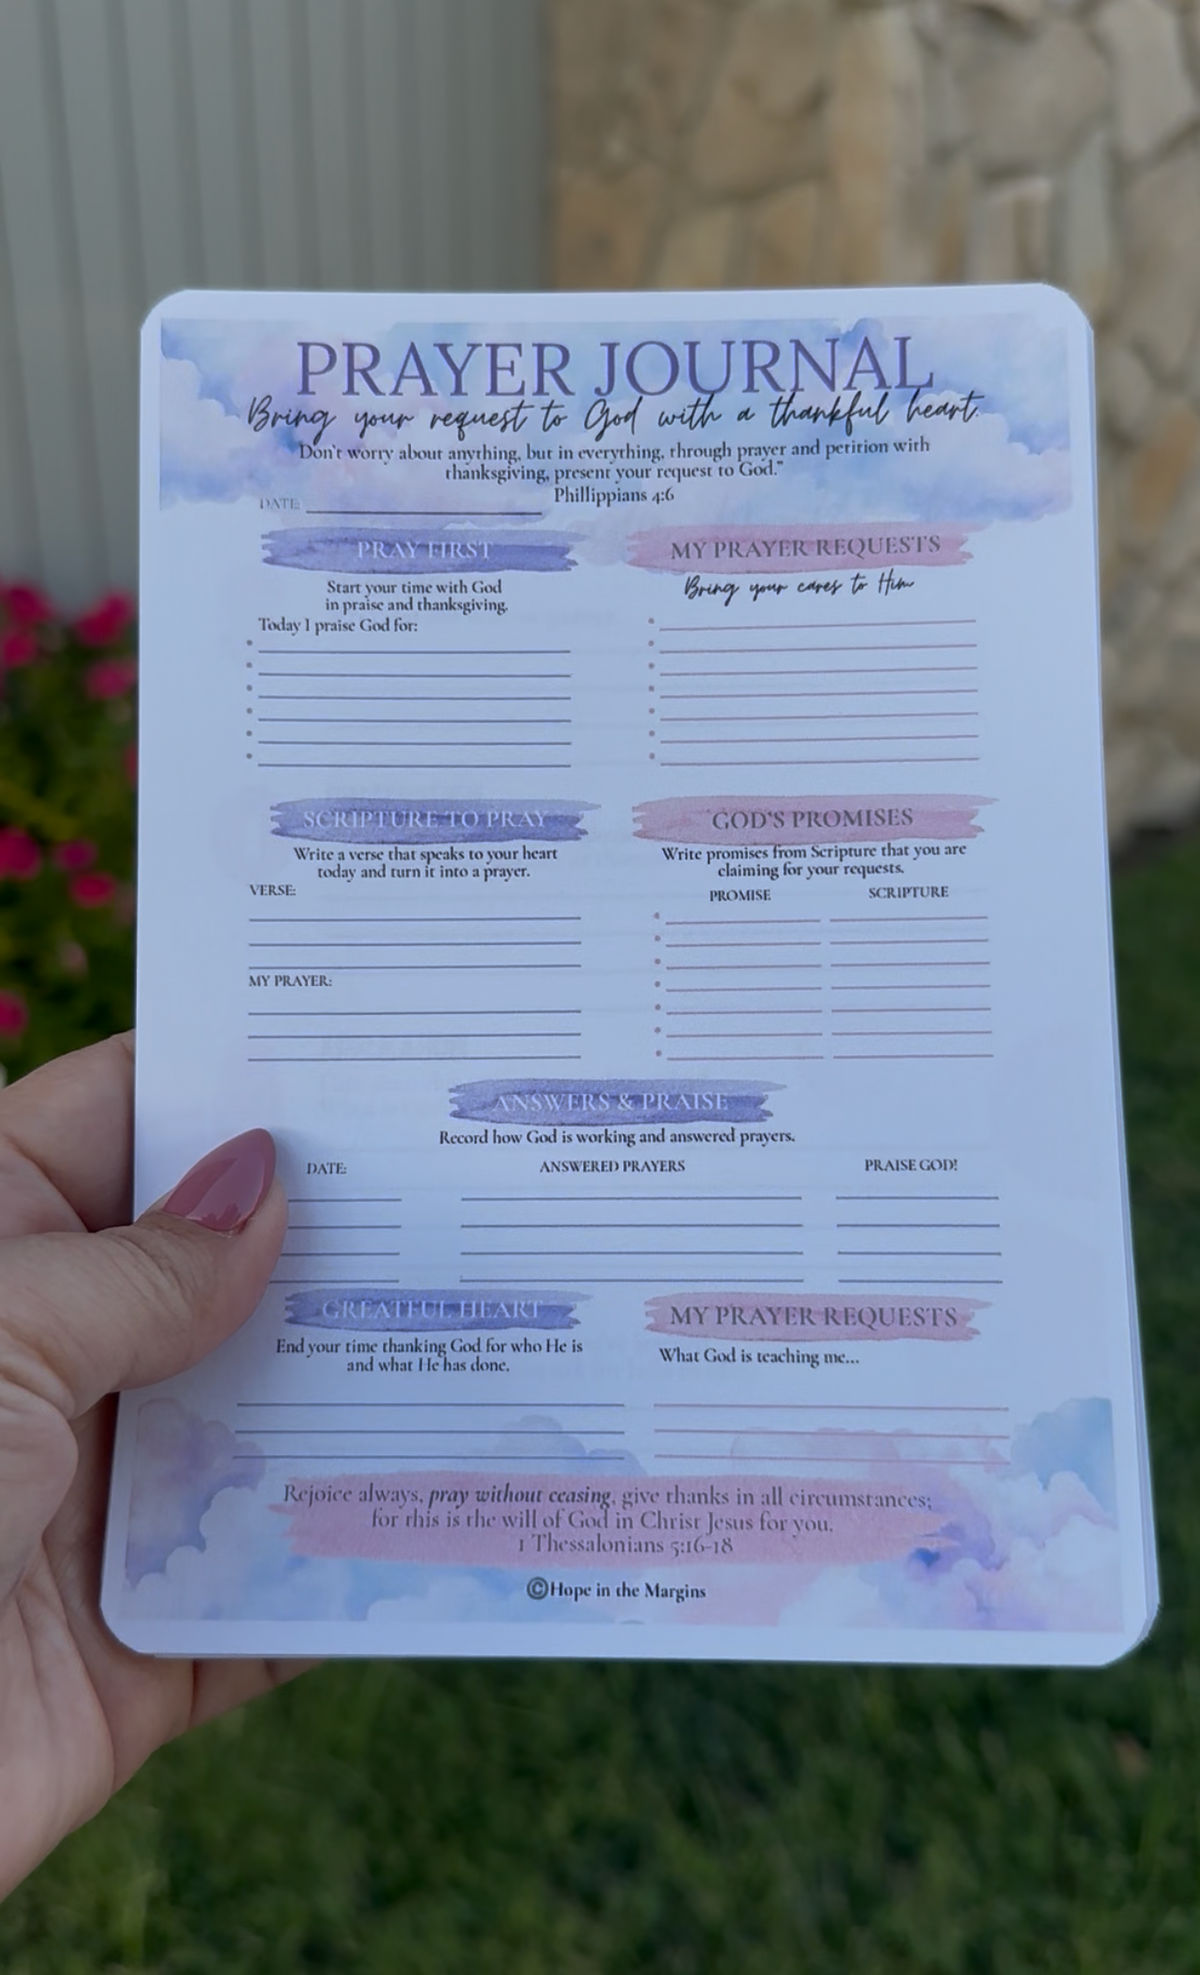 PRAYER JOURNAL
Bring your request to God with a thankful heart.
Don't worry about anything, but in everything, through prayer and petition with
thanksgiving, present your request to God."
Phillippians 4:6
DATE:
PRAY FIRST
Start your time with God
in praise and thanksgiving.
Today I praise God for:
MY PRAYER REQUESTS
Bring your cares to Him
SCRIPTURE TO PRAY
Write a verse that speaks to your heart
today and turn it into a prayer.
VERSE:
MY PRAYER:
GOD'S PROMISES
Write promises from Scripture that you are
claiming for your requests.
PROMISE SCRIPTURE
ANSWERS & PRAISE
Record how God is working and answered prayers.
DATE: ANSWERED PRAYERS PRAISE GOD!
GREATFUL HEART
End your time thanking God for who He is
and what He has done.
MY PRAYER REQUESTS
What God is teaching me...
Rejoice always, pray without ceasing, give thanks in all circumstances;
for this is the will of God in Christ Jesus for you.
1 Thessalonians 5:16-18
©Hope in the Margins